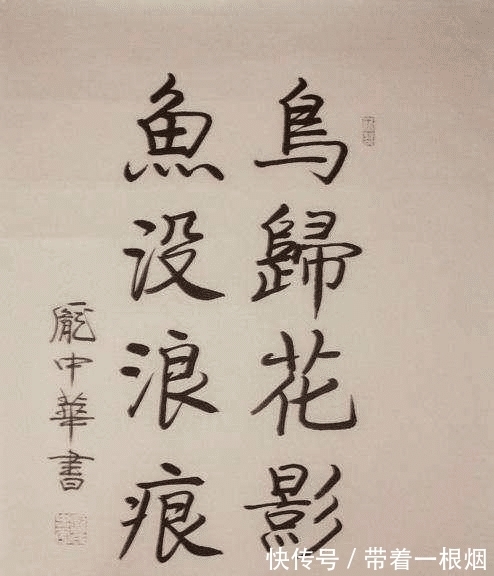 鳥歸花影
魚没浪痕
龐中華書
快传号 / 带着一根烟